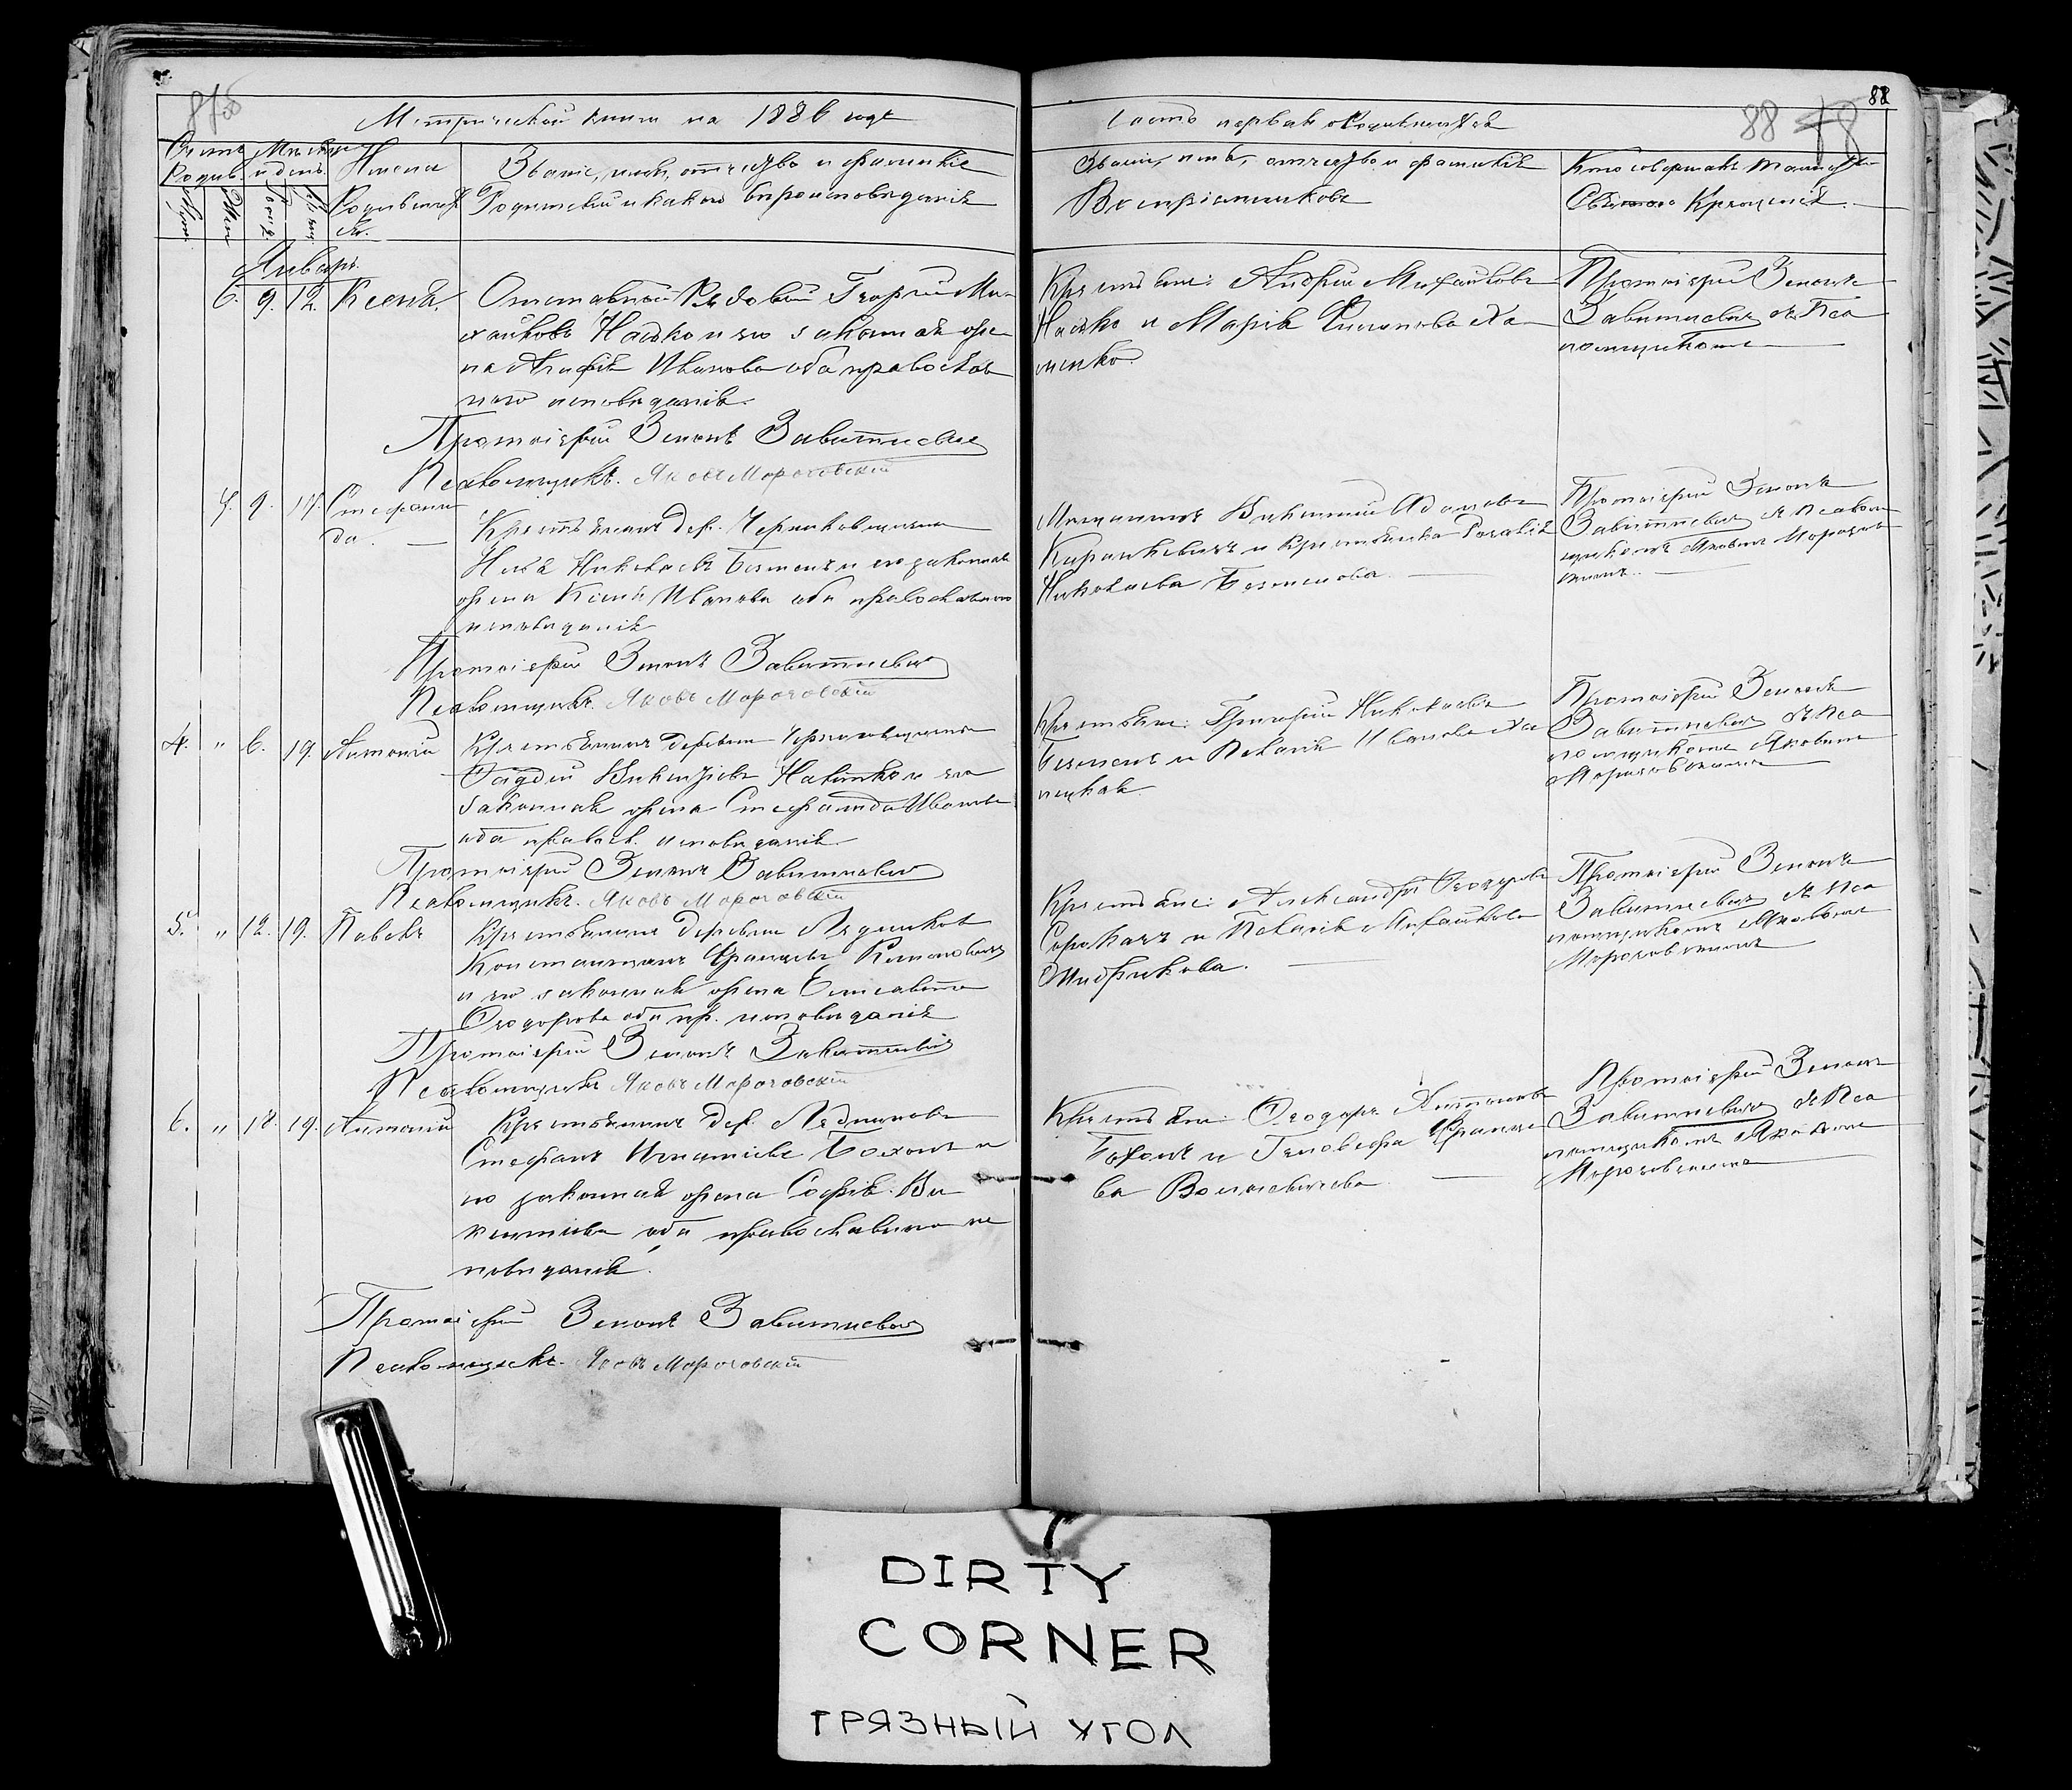 88
88
Метрической книги на 1886 годъ
Часть первая о Родившихся
Счетъ Родив. Мѣсяцъ и день.
Имена Родившихся.
Званіе, имя, отчество и фамилія
Родителей и какого вѣроисповѣданія
Званіе, имя, отчество и фамилія
Воспріемниковъ
Кто совершалъ таинство
Святого Крещенія.
Январь.
6. 9. 12. Ксенія.
Отставной Рядовой Георгій Ми-
хайловъ Насько и его законная же-
на Агафія Иванова оба православ
наго исповѣданія.
Протоіерей Зенонъ Завитневичъ
Псаломщикъ. Яковъ Мороговскій
Крестьяне: Андрей Михайловъ
Насько и Марія
менко.
Протоіерей Зенонъ
Завитневичъ съ Пса
ломщикомъ
7. 9. 19. Стефани
да.
Крестьянинъ дер.
Николаевъ Безменъ и его законная
жена Ксенія Иванова оба православнаго
исповѣданія
Протоіерей Зенонъ Завитневичъ
Псаломщикъ. Яковъ Мороговскій
Мѣщанинъ Викентій Адамовъ
и крестьянка
Николаева Безменова.
Протоіерей Зенонъ
Завитневичъ съ Псалом
щикомъ Яковомъ Морогов
скимъ.
4. " 6. 19. Антоній
Крестьянинъ деревни
Фаддей Викентіевъ и его
законная жена Стефанида Иванова
оба правосл. исповѣданія.
Протоіерей Зенонъ Завитневичъ
Псаломщикъ. Яковъ Мороговскій
Крестьяне: Григорій Николаевъ
Безменъ и Пелагія Иванова Ха
Протоіерей Зенонъ
Завитневичъ съ Пса
ломщикомъ Яковомъ
Мороговскимъ
5. " 12. 19. Павелъ
Крестьянинъ деревни Лядинковъ
Константинъ Францевъ
и его законная жена Елисавета
Ѳеодорова оба пр. исповѣданія
Протоіерей Зенонъ Завитневичъ
Псаломщикъ Яковъ Мороговскій
Крестьяне: Александръ Ѳеодоровъ
Сорокачъ и Пелагія Михайлова
Протоіерей Зенонъ
Завитневичъ съ Пса
ломщикомъ Яковомъ
Мороговскимъ
6. " 18. 19. Антоній
Крестьянинъ дер.
Стефанъ Игнатіевъ Боханъ и
его законная жена Софія Ви
кентіева оба православнаго ис
повѣданія.
Протоіерей Зенонъ Завитневичъ
Псаломщикъ. Яковъ Мороговскій
Крестьяне: Ѳеодоръ Антоновъ
Боханъ и Геновефа Франце
ва
Протоіерей Зенонъ
Завитневичъ съ Пса
ломщикомъ Яковомъ
Мороговскимъ
DIRTY
CORNER
ГРЯЗНЫЙ УГОЛ